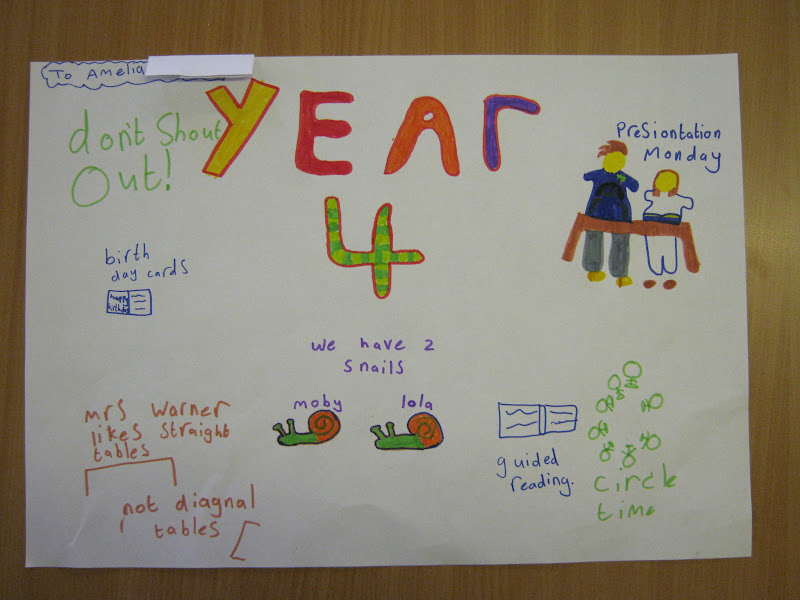 To Amelia
YEAr
4
don't Shout
Out!
PreSiontation
Monday
birth
day cards
happy
birthday
we have 2
snails
moby
lola
mrs warner
likes straight
tables
not diagnal
tables
guided
reading.
circle
time